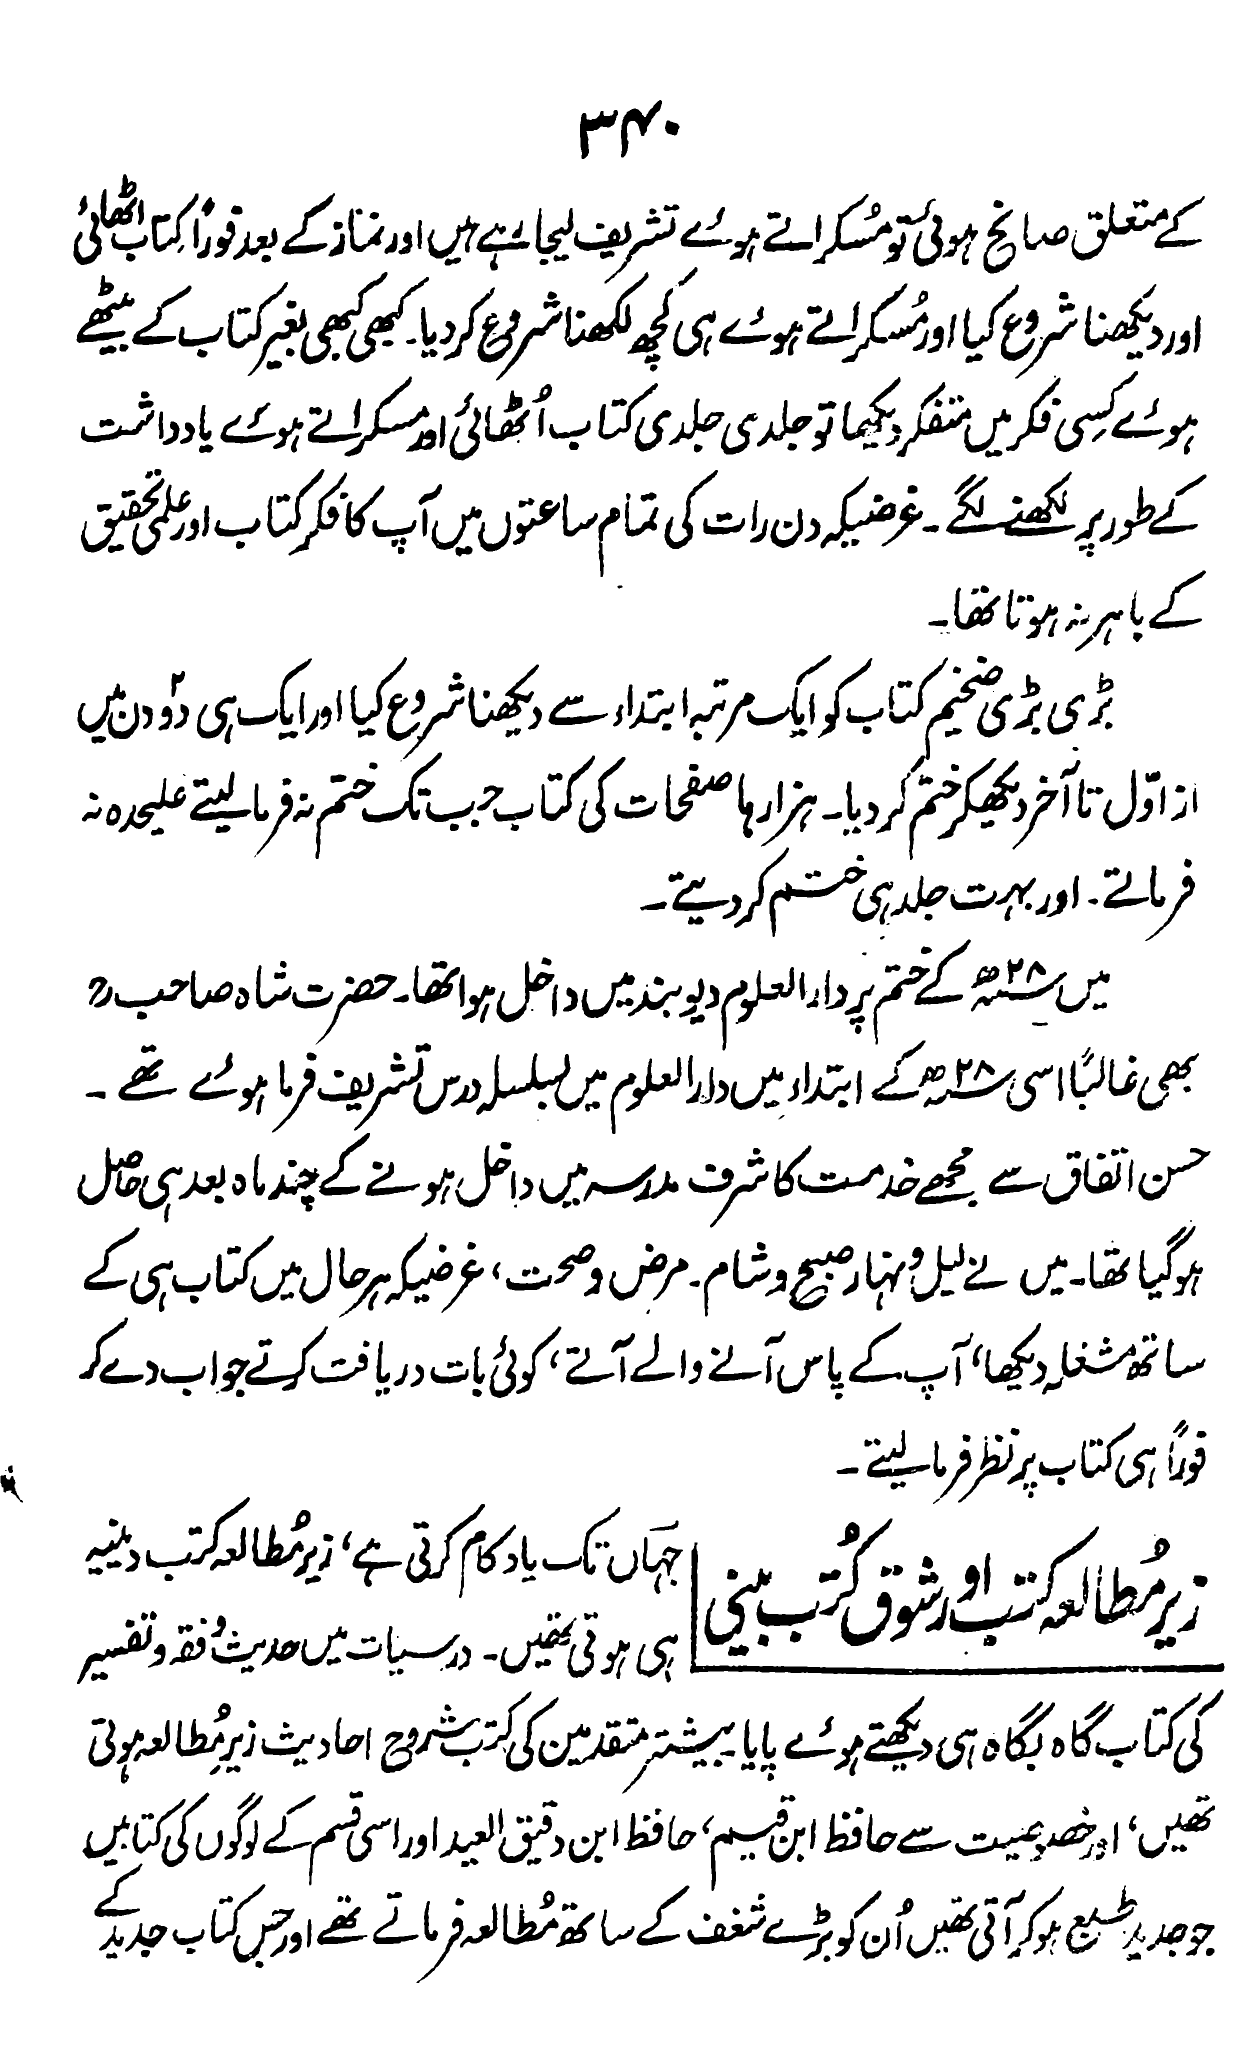 ۳۴۰
کے متعلق سانح ہوئی تو مُسکراتے ہوئے تشریف لیجا رہے ہیں اور نماز کے بعد فوراً کتاب اٹھائی
اور دیکھنا شروع کیا اور مُسکراتے ہوئے ہی کچھ لکھنا شروع کردیا۔ کبھی کبھی بغیر کتاب کے بیٹھے
ہوئے کِسی فکر میں متفکر دیکھا تو جلدی جلدی کتاب اُٹھائی اور مسکراتے ہوئے یادداشت
کے طور پر لکھنے لگے۔ غرضیکہ دن رات کی تمام ساعتوں میں آپ کا فکر کتاب اور علمی تحقیق
کے باہر نہ ہوتا تھا۔
بڑی بڑی ضخیم کتاب کو ایک مرتبہ ابتداء سے دیکھنا شروع کیا اور ایک ہی دو۲ دن میں
از اوّل تا آخر دیکھکر ختم کر دیا۔ ہزارہا صفحات کی کتاب جب تک ختم نہ فرما لیتے علیحدہ نہ
فرماتے۔ اور بہت جلد ہی ختم کر دیتے۔
میں ۲۸ھ کے ختم پر دارالعلوم دیوبند میں داخل ہوا تھا۔ حضرت شاہ صاحبؒ
بھی غالباً اسی ۲۸ھ کے ابتداء میں دارالعلوم میں بسلسلہ درس تشریف فرما ہوئے تھے۔
حسن اتفاق سے مجھے خدمت کا شرف مدرسہ میں داخل ہونے کے چند ماہ بعد ہی حاصل
ہوگیا تھا۔ میں نے لیل و نہار صبح و شام۔ مرض و صحت، غرضیکہ ہر حال میں کتاب ہی کے
ساتھ مشغلہ دیکھا، آپ کے پاس آنے والے آتے، کوئی بات دریافت کرتے جواب دے کر
فوراً ہی کتاب پر نظر فرما لیتے۔
زیرِ مُطالعہ کتب اور شوق کُتب بینی
جہاں تک یاد کام کرتی ہے، زیر مُطالعہ کتب دینیہ
ہی ہوتی تھیں۔ درسیات میں حدیث و فقہ و تفسیر
کی کتاب گاہ بگاہ ہی دیکھتے ہوئے پایا۔ بیشتر متقدمین کی کتب شروح احادیث زیرِ مُطالعہ ہوتی
تھیں، اور خصوصیت سے حافظ ابن قیم، حافظ ابن دقیق العید اور اسی قسم کے لوگوں کی کتابیں
جو جدید طبع ہو کر آتی تھیں اُن کو بڑے شغف کے ساتھ مُطالعہ فرماتے تھے اور جس کتاب جدید کے